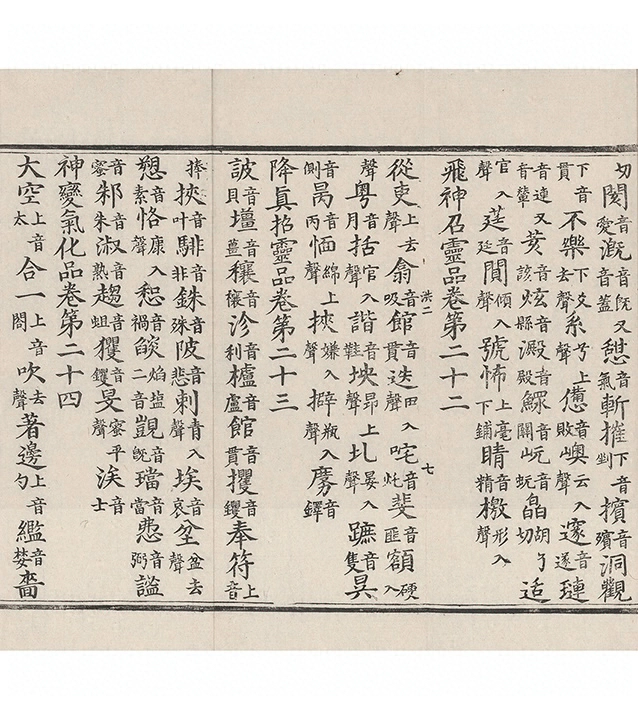 切閡音愛漑音旣又音蓋憩音氣斬摧下音剉擯音殯洞觀
下音貫不樂下爻去聲系兮上聲憊音敗嶼云入聲邃音遂璉
音連又音輦荄音該炫音縣澱音殿鰥音關岏音蚖皛胡了切适
官入聲莛音廷闃傾入聲號怖上毫下鋪睛音精檄形入聲
飛神召靈品卷第二十二
洪二 七
從吏上去聲翕音吸館音貫迭田入聲咤音奼斐音匪額硬入
聲粤音月括官入聲諧音鞋坱昂上聲圠晏入聲蹠音隻昃
音側昺音丙愐綿上聲挾嫌入聲擗瓶入聲音鐸
降眞招靈品卷第二十三
詖音貝壃音薑穰音禳沴音利櫨音盧館音貫攫音钁奉符上音
捧挾音叶騑音非銖音殊陂音悲刺青入聲埃音哀坌盆去聲
愬音素恪康入聲惒音禍燄焰塩二音覬音旣璫音當音弼謐
音密邾音朱淑音熟趄音蛆玃音钁旻密平聲涘音士
神變氣化品卷第二十四
大空上音太合一上音閤吹去聲著邊上音勺音婪嗇